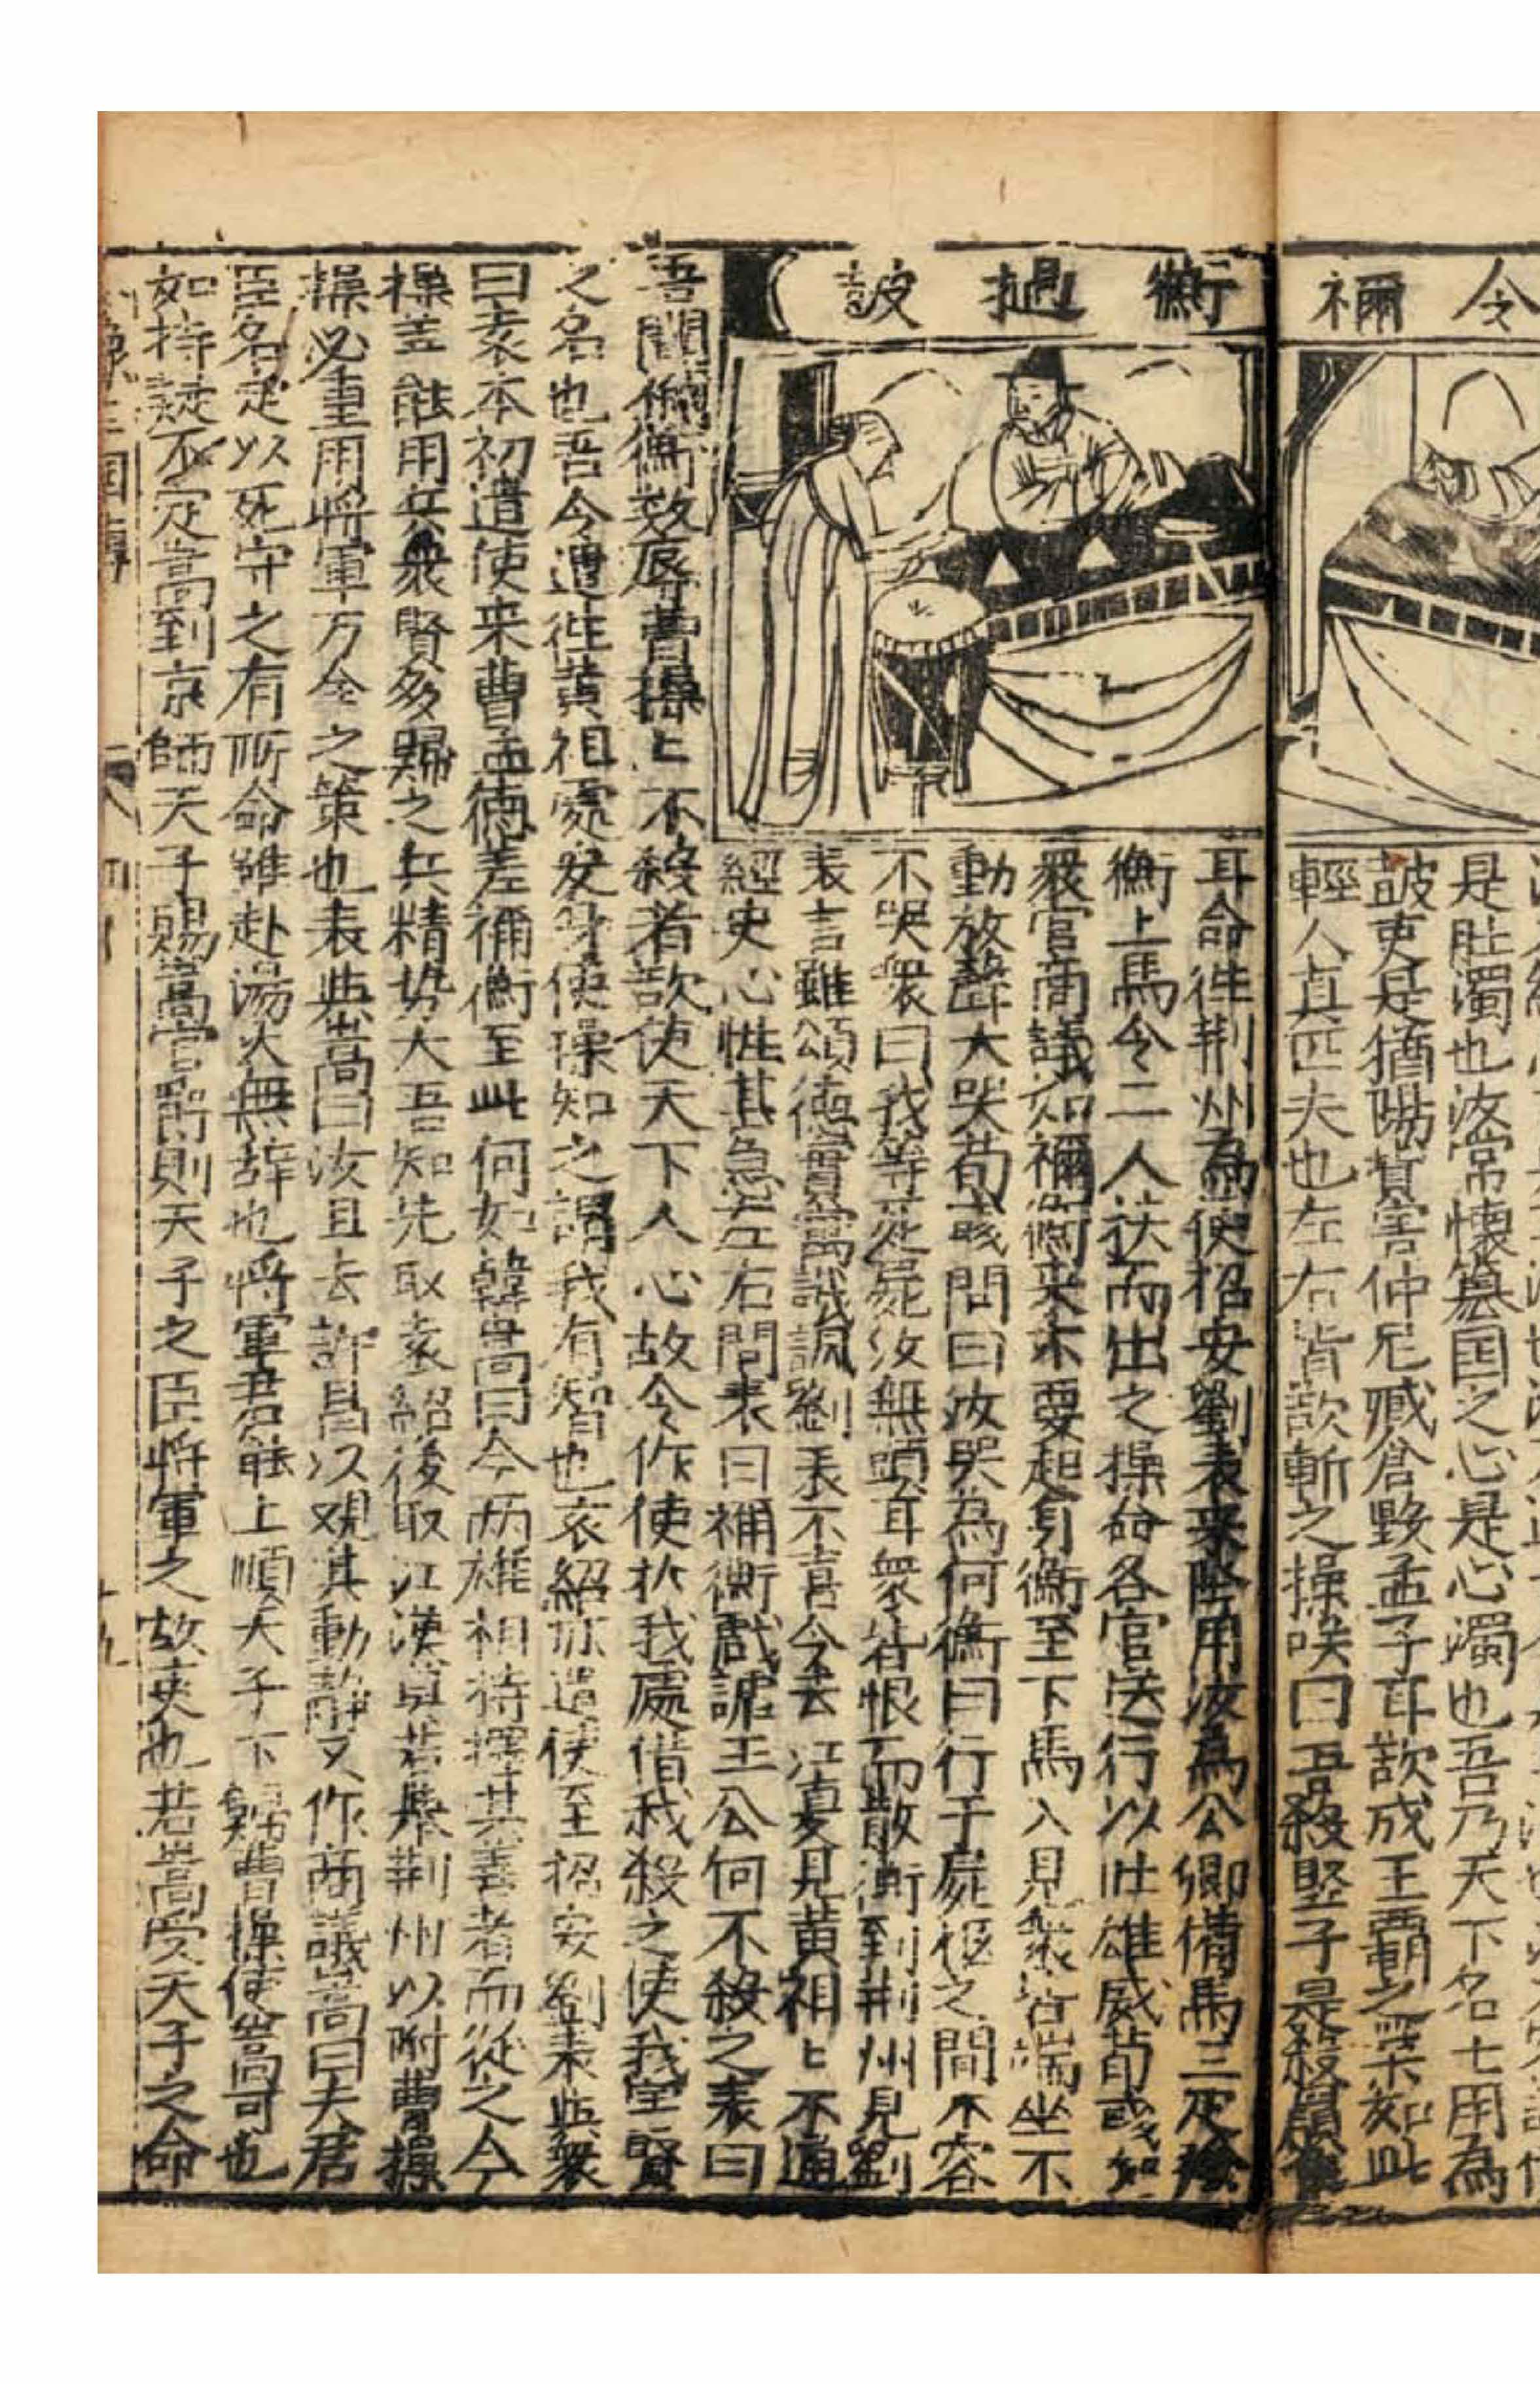 令禰
是肚濁也汝常懷篡国之心是心濁也吾乃天下名士用為
皷吏是猶陽貨害仲尼臧倉毀孟子耳欲成王霸之業如此
輕人真匹夫也左右皆欲斬之操咲曰吾殺竪子是殺鼠雀
衡撾皷
耳命徃荆州為使招安劉表来降用汝為公卿備馬三疋
衡上馬令二人扶而出之操命各官送行以壮雄威荀彧知
衆官商議如禰衡来不要起身衡至下馬入見衆皆端坐不
動放聲大哭荀彧問曰汝哭為何衡曰行于屍柩之間不容
不哭衆曰我等死屍汝無頭耳衆皆恨而散衡到荆州見劉
表言雖頌德實為譏諷劉表不言令去江夏見黄祖〻不通
經史心性甚急左右問表曰禰衡戲謔王公何不殺之表曰
吾聞禰衡数辱曹操〻不殺者欲使天下人心故令作使於我處借我殺之使我害賢
之名也吾今遣徃黄祖處安身使操知之謂我有智也袁紹亦遣使至招安劉表與衆
曰袁本初遣使来曹孟德差禰衡至此何如韓嵩曰今两雄相持擇其善者而從之今
操盖能用兵衆賢多歸之兵精势大吾知先取袁紹後取江漢莫若舉荆州以附曹操
操必重用將軍万全之策也表與嵩曰汝且去許昌以观其動靜又作商議嵩曰夫君
臣名定以死守之有所命雖赴湯火無辞也將軍若能上順天子下歸曹操使嵩可也
如持疑不定嵩到京師天子賜嵩官爵則天子之臣將軍之故吏也若嵩受天子之命